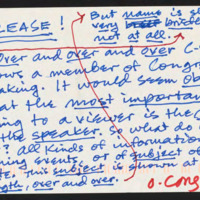 LEASE!
But name is s
very briefl
not at all.
Over and over and over C-S
ows a member of Congr
aking. It would seem ob
at the most importan
ing to a viewer is the
the speaker. So what do
? All kinds of informatio
ning events, or of subject of
te. This subject is shown at
gth, over and over.
o. Cons